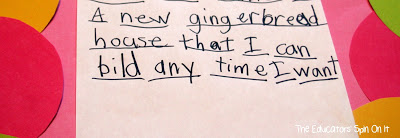 A new gingerbread
house that I can
bild any time I want
The Educators Spin On It